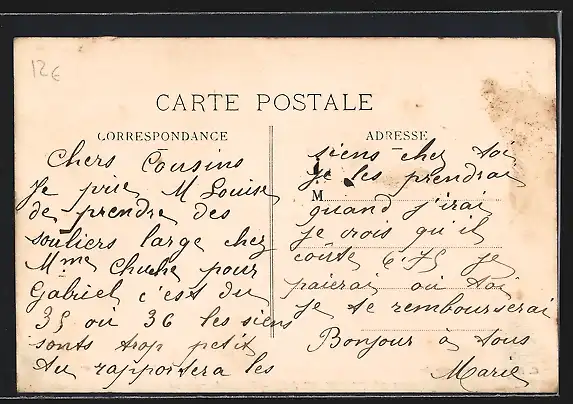 12€
CARTE POSTALE
CORRESPONDANCE
Chers Cousins
Je prie M Louise
de prendre des
souliers large chez
Mme Chuche pour
Gabriel c'est du
35 ou 36 les siens
sonts trop petit
tu rapportera les
ADRESSE
siens chez toi
je les prendrai
M
quand j'irai
je crois qu'il
coûte 6.75 je
paierai ou toi
je te rembourserai
Bonjour à tous
Marie